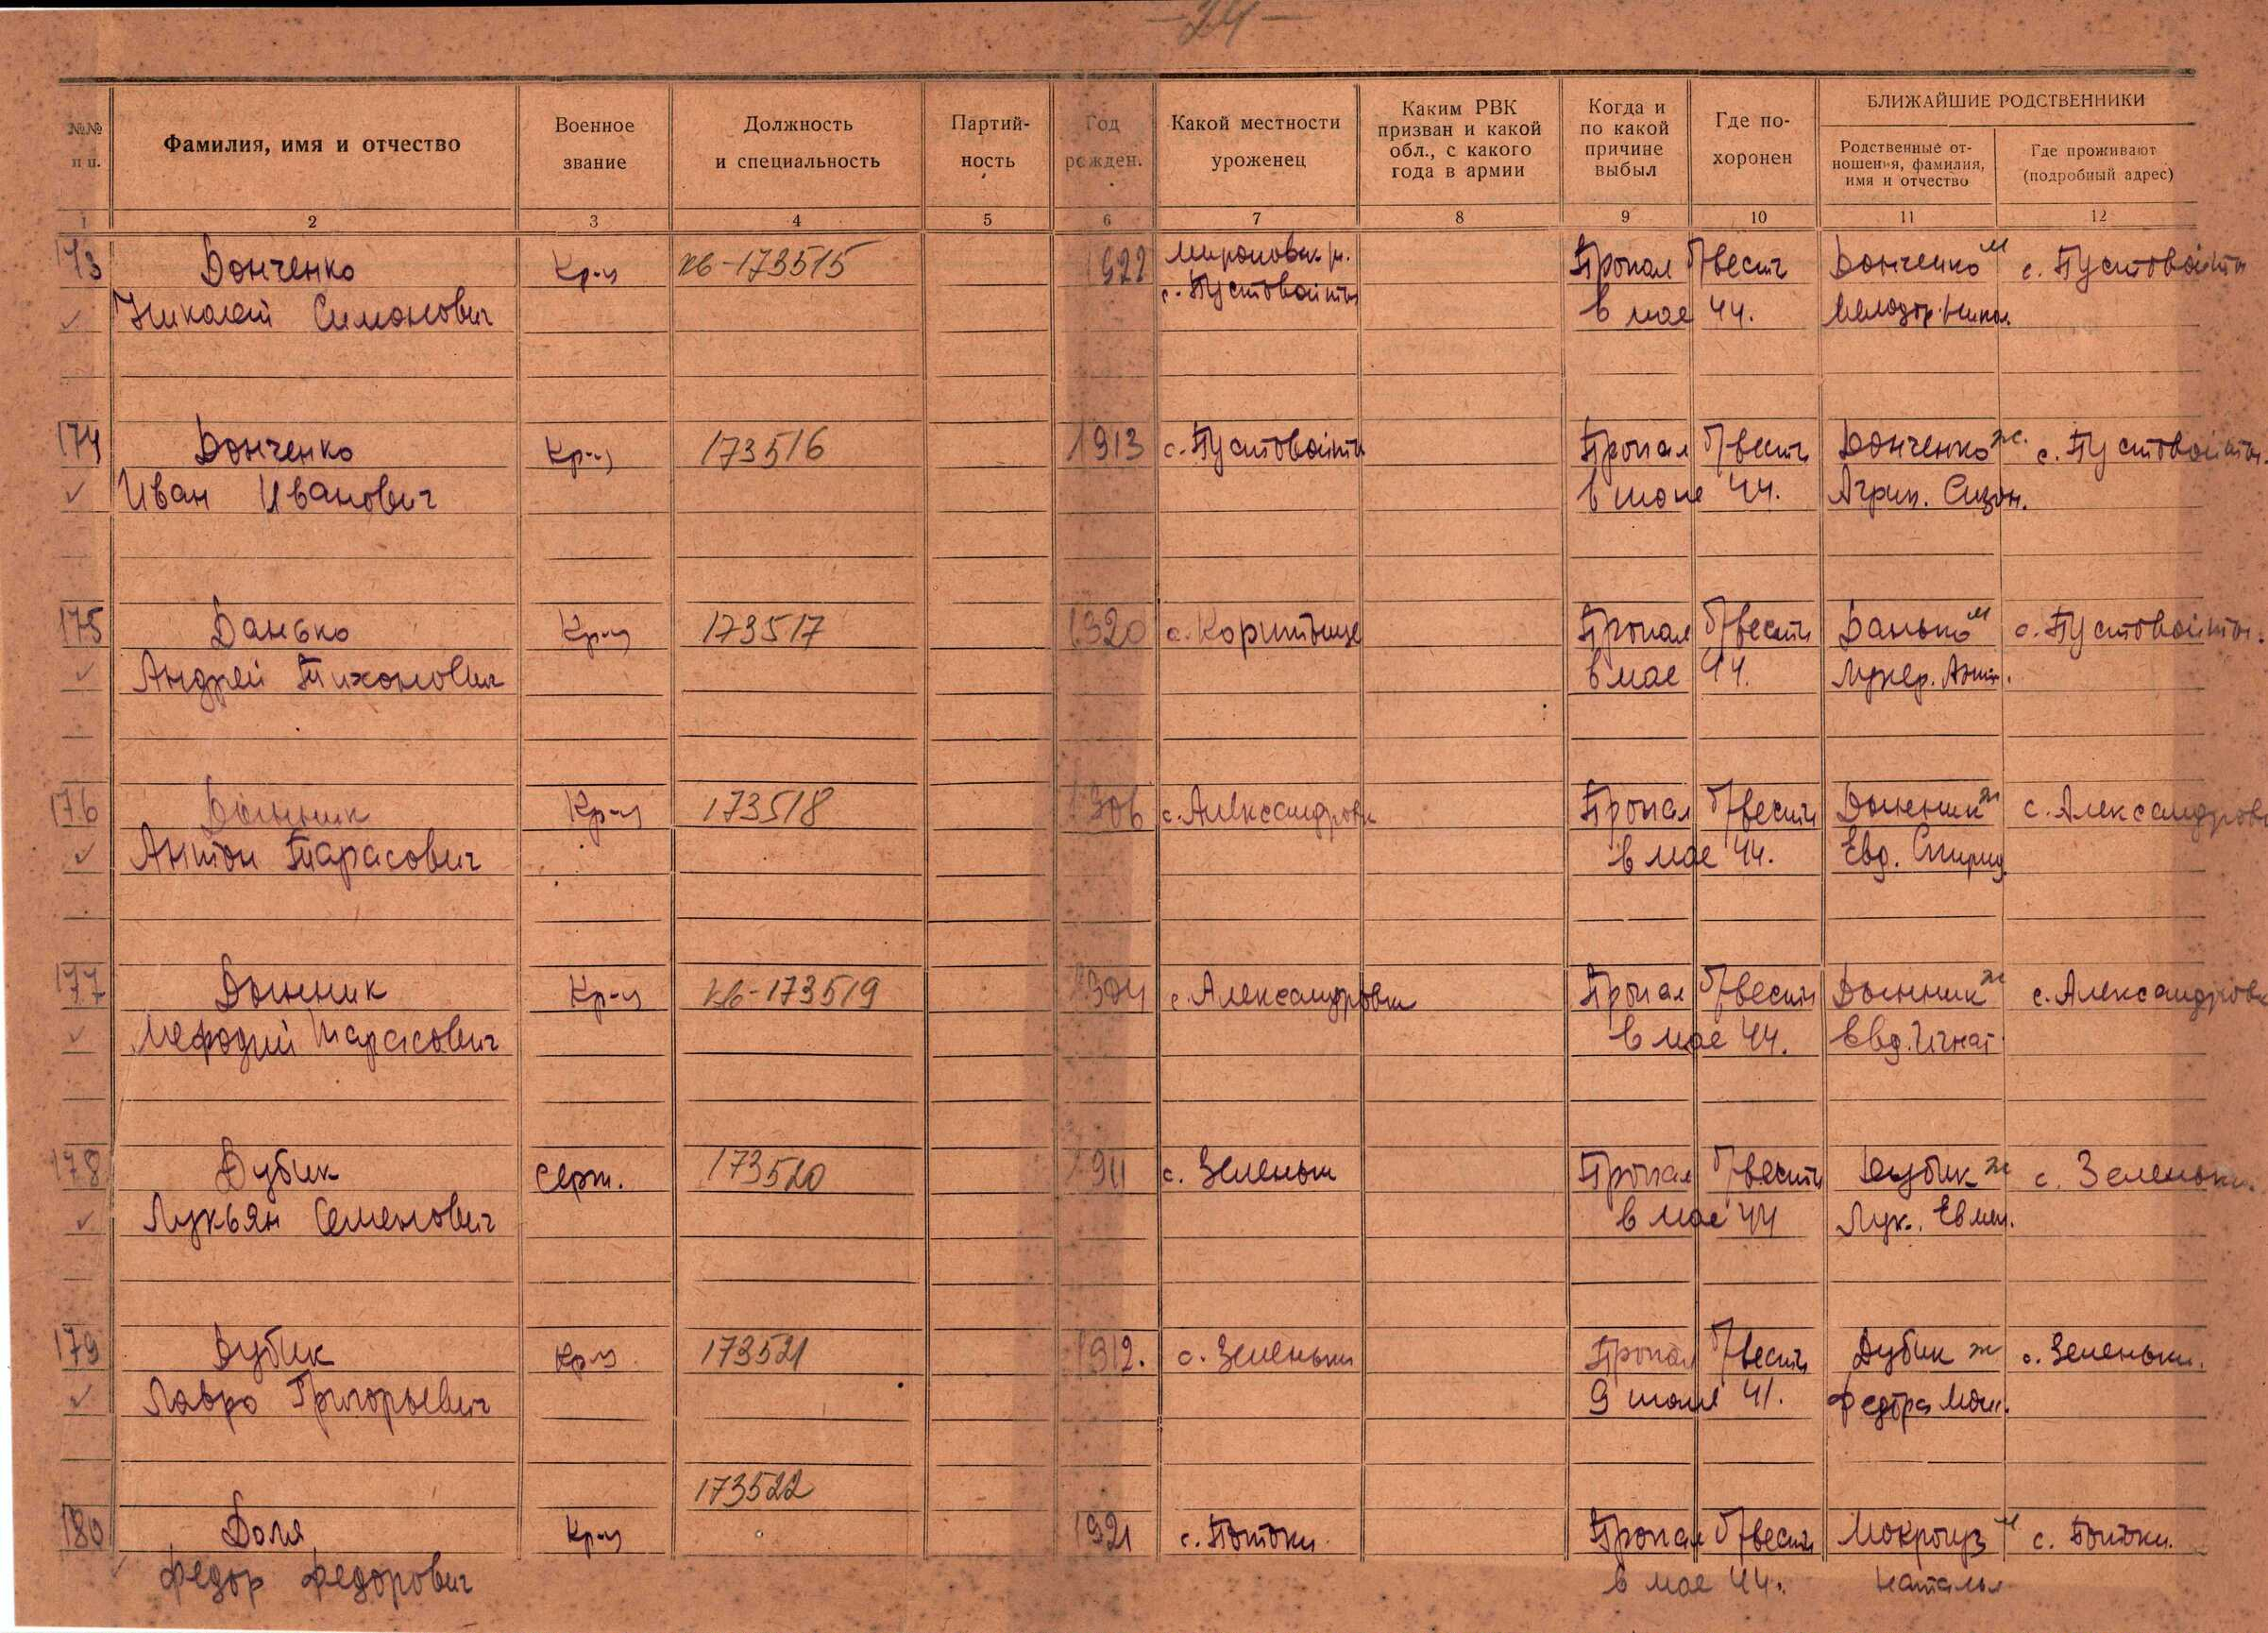 -24-
БЛИЖАЙШИЕ РОДСТВЕННИКИ
№№ п п. Фамилия, имя и отчество Военное звание Должность и специальность Партий-ность Год рожден. Какой местности уроженец Каким РВК призван и какой обл., с какого года в армии Когда и по какой причине выбыл Где по-хоронен Родственные от-ношения, фамилия, имя и отчество Где проживают (подробный адрес)
1 2 3 4 5 6 7 8 9 10 11 12
173 Донченко Кр-ц кв-173515 1922 Мироновск р. Пропал б/вести Донченко м с. Пустовойты
Николай Симонович с. Пустовойты в мае 44. Никол.
174 Донченко Кр-ц 173516 1913 с. Пустовойты Пропал б/вести Донченко ж. с. Пустовойты.
Иван Иванович в июне 44. Агрип. Сизон.
175 Данько Кр-ц 173517 1920 с. Коритыще Пропал б/вести Данько м с. Пустовойты.
Андрей Тихонович в мае 44. Лукер. Ант.
176 Дынник Кр-ц 173518 1906 с. Александровка Пропал б/вести Дынник ж с. Александровка
Антон Тарасович в мае 44. Евд. Спирид.
177 Дынник Кр-ц кв-173519 1904 с. Александровка Пропал б/вести Дынник ж с. Александровка
Мефодий Тарасович в мае 44. Евд. Игнат.
178 Дубик серж. 173520 1911 с. Зеленьки Пропал б/вести Дубик ж с. Зеленьки.
Лукьян Семенович в мае 44 Лук. Евмен.
179 Дубик Кр-ц 173521 1912. с. Зеленьки Пропал б/вести Дубик ж с. Зеленьки.
Лавро Григорьевич 9 июля 41.
173522
180 Доля Кр-ц 1921 с. Потоки Пропал б/вести Мокрогуз м с. Потоки.
Федор Федорович в мае 44. Наталья